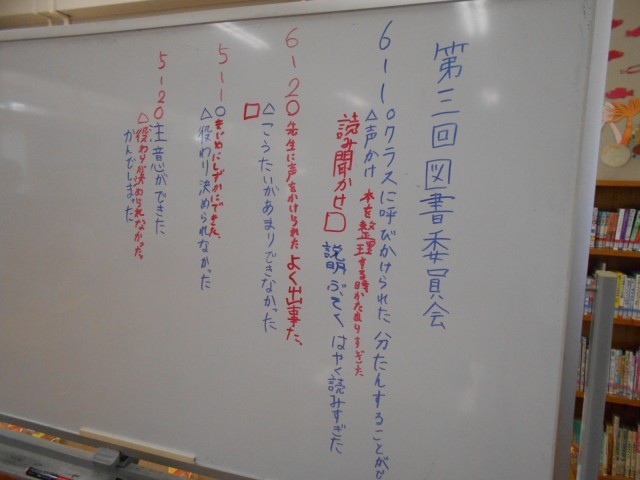 第三回図書委員会
6-1 ○クラスに呼びかけられた 分たんすることがで
△声かけ 本を整理する時かたまりすぎた
読み聞かせ□ 説明ぶそく はやく読みすぎた
6-2 ○先生に声をかけられた よく出事た、
△こうたいがあまりできなかった
□
5-1 ○まじめにしずかにできた、
△役わり決められなかった
5-2 ○注意ができた、
△役わり決められなかった。
かんでしまった